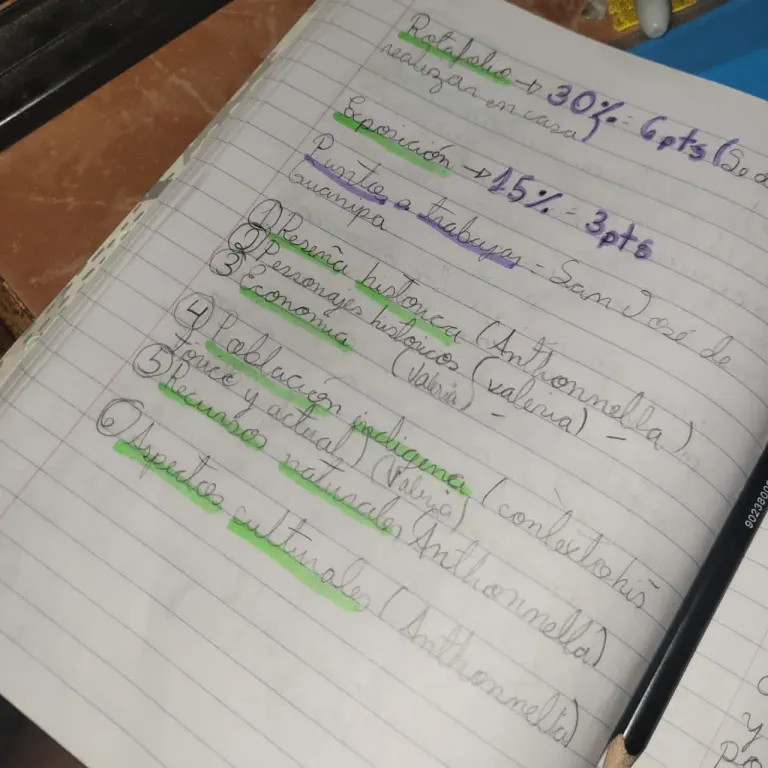 Rotafolio → 30% = 6pts (Se d
realizar en casa)
Exposición → 15% = 3pts
Puntos a trabajar - San José de
Guanipa
① Reseña historica (Anthonnella)
② Personajes histoicos (valeria) -
③ Economia (Valeria) -
④ Población indigena (contextohis
torico y actual) (Valeria)
⑤ Recursos naturales (Anthonnella)
⑥ Aspectos culturales (Anthonnella)
y
po